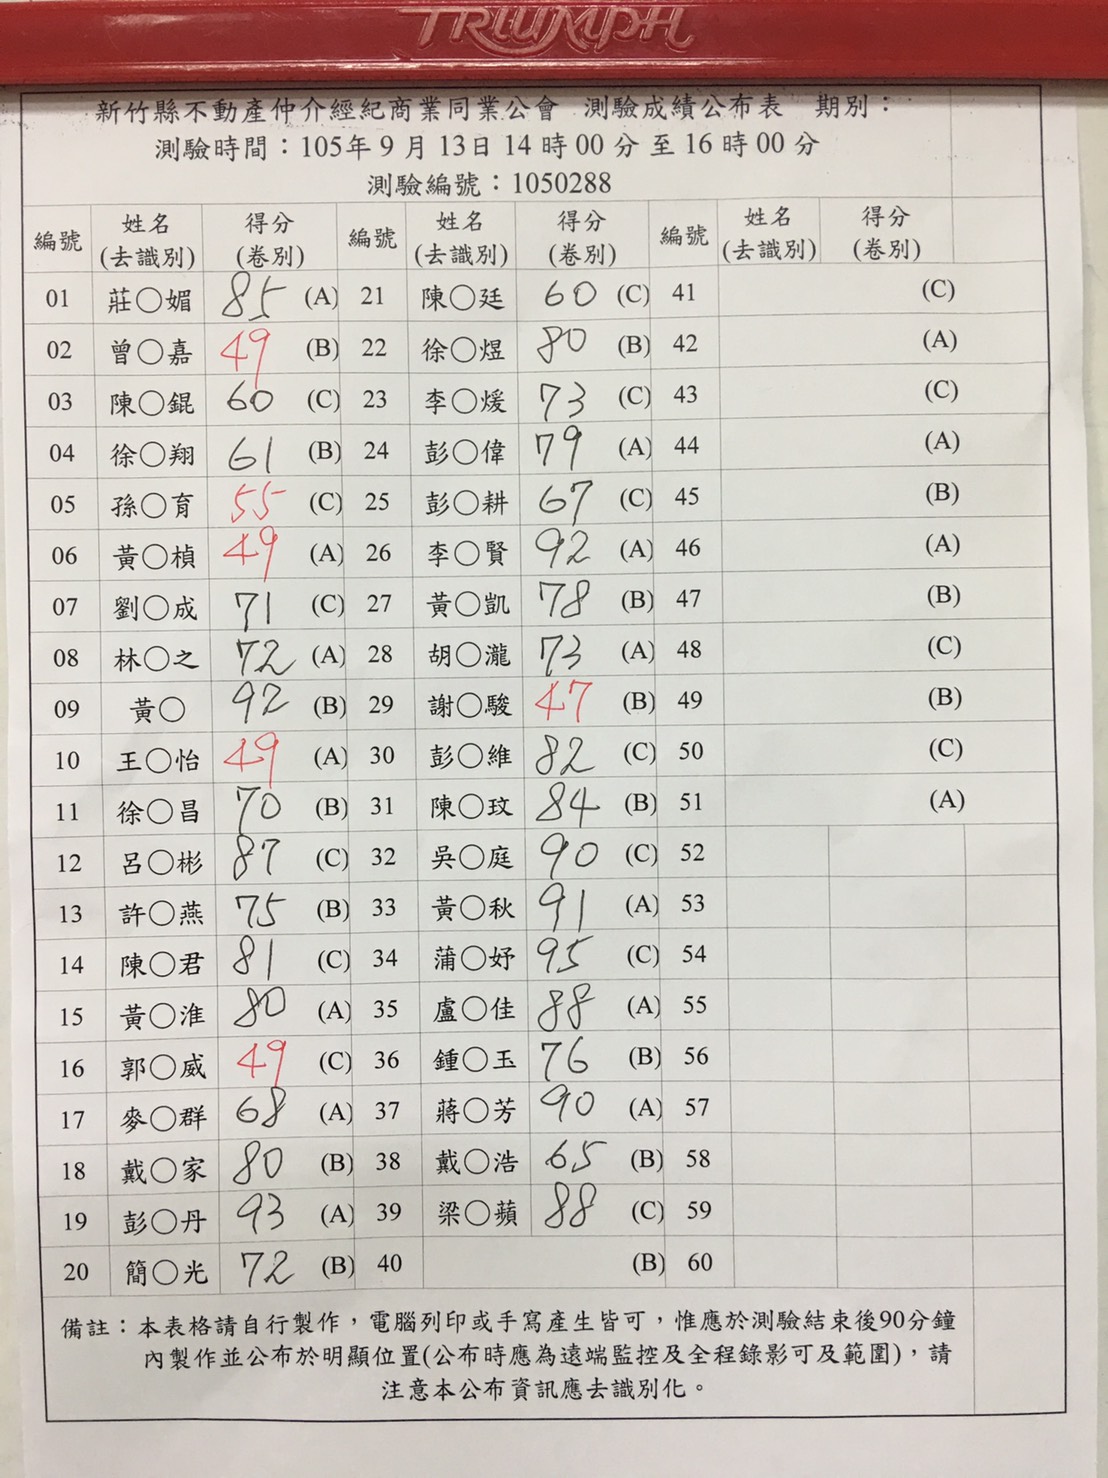 TRIUMPH
新竹縣不動產仲介經紀商業同業公會 測驗成績公布表 期別：
測驗時間：105年9月13日14時00分至16時00分
測驗編號：1050288
編號 姓名(去識別) 得分(卷別) 編號 姓名(去識別) 得分(卷別) 編號 姓名(去識別) 得分(卷別)
01 莊〇媚 85 (A) 21 陳〇廷 60 (C) 41 (C)
02 曾〇嘉 49 (B) 22 徐〇煜 80 (B) 42 (A)
03 陳〇錕 60 (C) 23 李〇煖 73 (C) 43 (C)
04 徐〇翔 61 (B) 24 彭〇偉 79 (A) 44 (A)
05 孫〇育 55 (C) 25 彭〇耕 67 (C) 45 (B)
06 黃〇楨 49 (A) 26 李〇賢 92 (A) 46 (A)
07 劉〇成 71 (C) 27 黃〇凱 78 (B) 47 (B)
08 林〇之 72 (A) 28 胡〇瀧 73 (A) 48 (C)
09 黃〇 92 (B) 29 謝〇駿 47 (B) 49 (B)
10 王〇怡 49 (A) 30 彭〇維 82 (C) 50 (C)
11 徐〇昌 70 (B) 31 陳〇玟 84 (B) 51 (A)
12 呂〇彬 87 (C) 32 吳〇庭 90 (C) 52
13 許〇燕 75 (B) 33 黃〇秋 91 (A) 53
14 陳〇君 81 (C) 34 蒲〇妤 95 (C) 54
15 黃〇淮 80 (A) 35 盧〇佳 88 (A) 55
16 郭〇威 49 (C) 36 鍾〇玉 76 (B) 56
17 麥〇群 68 (A) 37 蔣〇芳 90 (A) 57
18 戴〇家 80 (B) 38 戴〇浩 65 (B) 58
19 彭〇丹 93 (A) 39 梁〇蘋 88 (C) 59
20 簡〇光 72 (B) 40 (B) 60
備註：本表格請自行製作，電腦列印或手寫產生皆可，惟應於測驗結束後90分鐘
內製作並公布於明顯位置(公布時應為遠端監控及全程錄影可及範圍)，請
注意本公布資訊應去識別化。